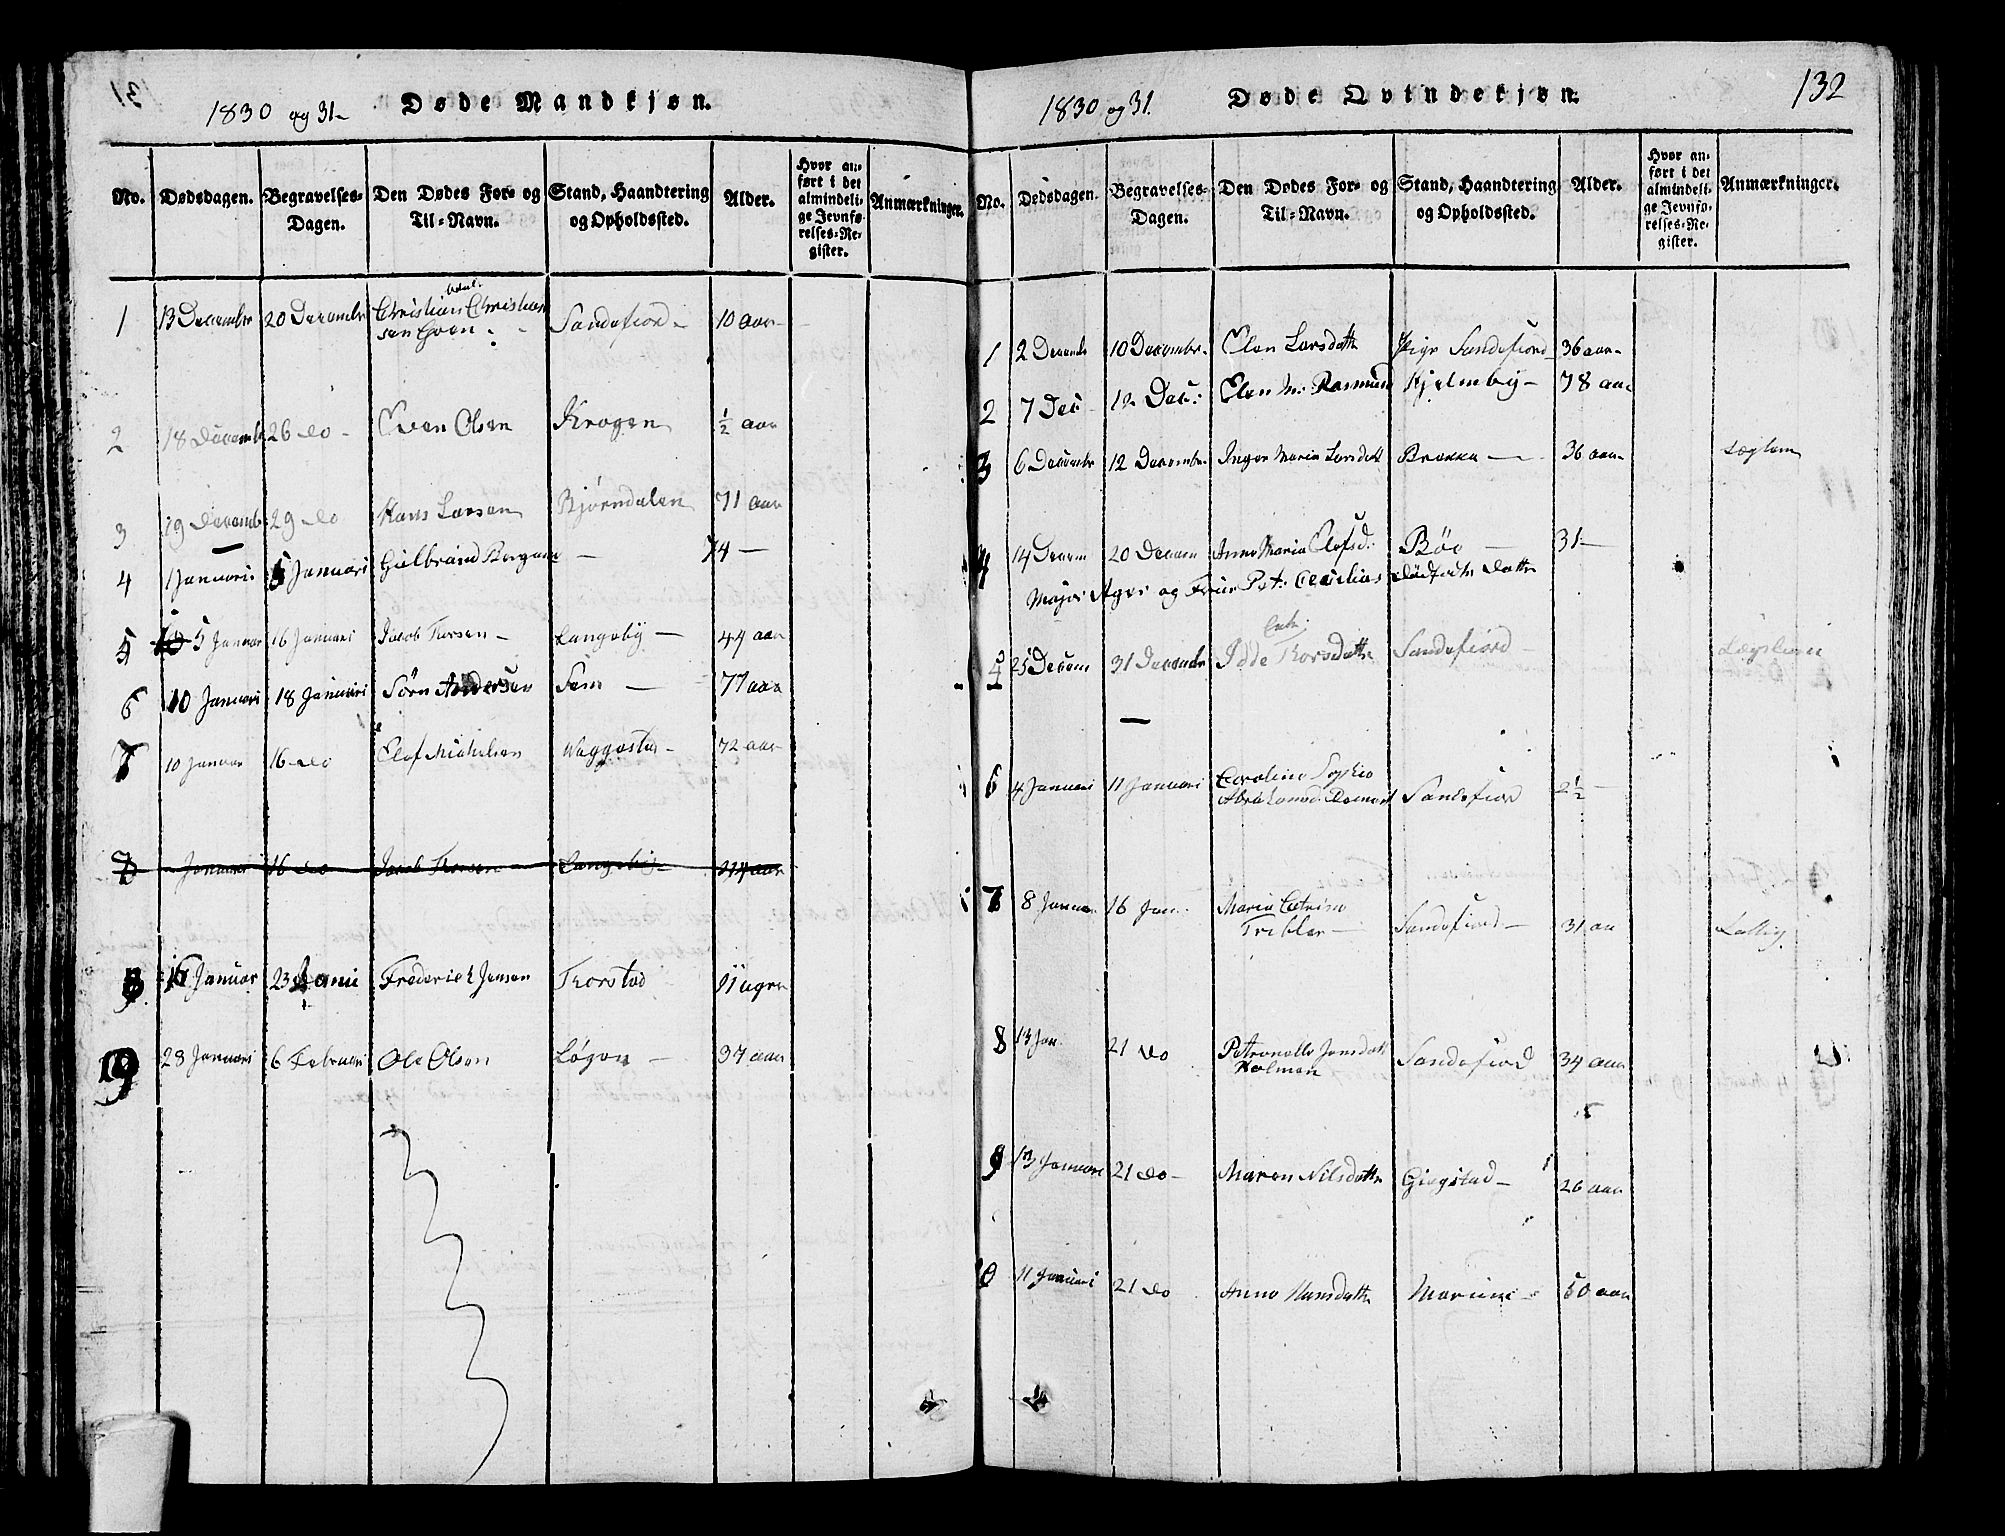 1830 og 31- Døde Mandkjøn.
No. Dødsdagen. Begravelses-Dagen. Den Dødes For- og Til-Navn. Stand, Haandtering og Opholdssted. Alder. Hvor anført i det almindelige Jevnførelses-Register. Anmærkninger.
1 13 Decembr 20 Decembr Christian Christian Sandefiord- 10 aar-
sen
2 18 Decemb 26 do- Even Olsen Krogen ½ aar
3 19 Decemb 29 do Hans Larsen Bjørndalen 71 aar
4 1 Januari 5 Januari Gulbrand - 74 -
5 5 Januar 16 Januari Jacob Thorsen- Langeby- 44 aar
6 10 Januari 18 Januari Sørn Andersen Sem - 77 aar
7 10 Januar 16 do Elof Michelsen Waggestad- 72 aar
7 Januari 16 do Jacob Thorsen - Langeby- 44 aar
8 Januar 23 Frederick Jensen Thorstad 11 uger
9 28 Januari 6 Februari Ole Olsen Løgen - 37 aar
1830 og 31. Døde Qvindekjøn. 132
No. Dødsdagen. Begravelses-Dagen. Den Dødes For- og Til-Navn. Stand, Haandtering og Opholdssted. Alder. Hvor anført i det almindelige Jevnførelses-Register. Anmærkninger.
1 2 Decemb 10 Decembr. Elen Larsdattr Pige Sandefiord 36 aar-
2 7 Dec 12 Dec: Elen M: Rasmusd Hjelmby- 78 aar
3 6 Decembr 12 Decembr. Inger Maria Larsdatt Brekke - 36 aar
4 14 Decem 20 Decem Anne Maria Elofsd: Bøe - 31-
Major og Frue Pet: Cecilias dødfødte Datter
Enke:
5 25 Decem 31 Decembr Thorsdattr Sandefiord-
6 4 Januari 11 Januari Caroline Sophie
Abrahamsd: Sandefiord 2½ -
7 8 Januar 16 Jan: Maria Catrine
Tribler - Sandefiord- 31 aar
8 13 Jan. 21 do Petronelle Jensdatt
Holmen Sandefiord 34 aar
9 13 Januari 21 do- Maren Nilsdattr Giegstad- 26 aar
10 11 Januari 21 do Anne Hansdattr 50 aar